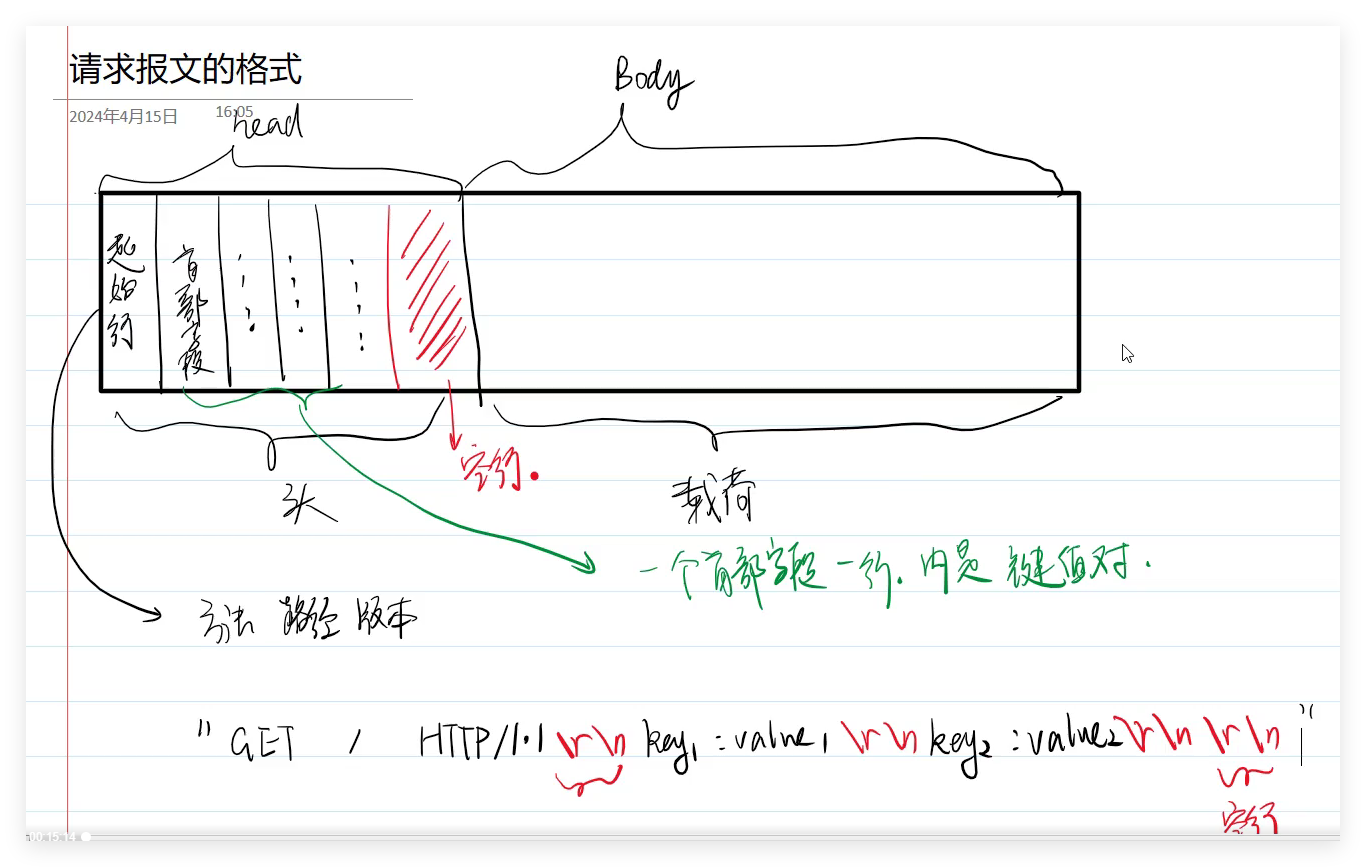 请求报文的格式
2024年4月15日 16:05
head
Body
起始行
首部字段
头
空行
载荷
一个首部字段一行. 内是 键值对.
方法 路径 版本
"GET / HTTP/1.1 \r\n key1 : value1 \r\n key2 : value2 \r\n \r\n"
空行
00:15:14